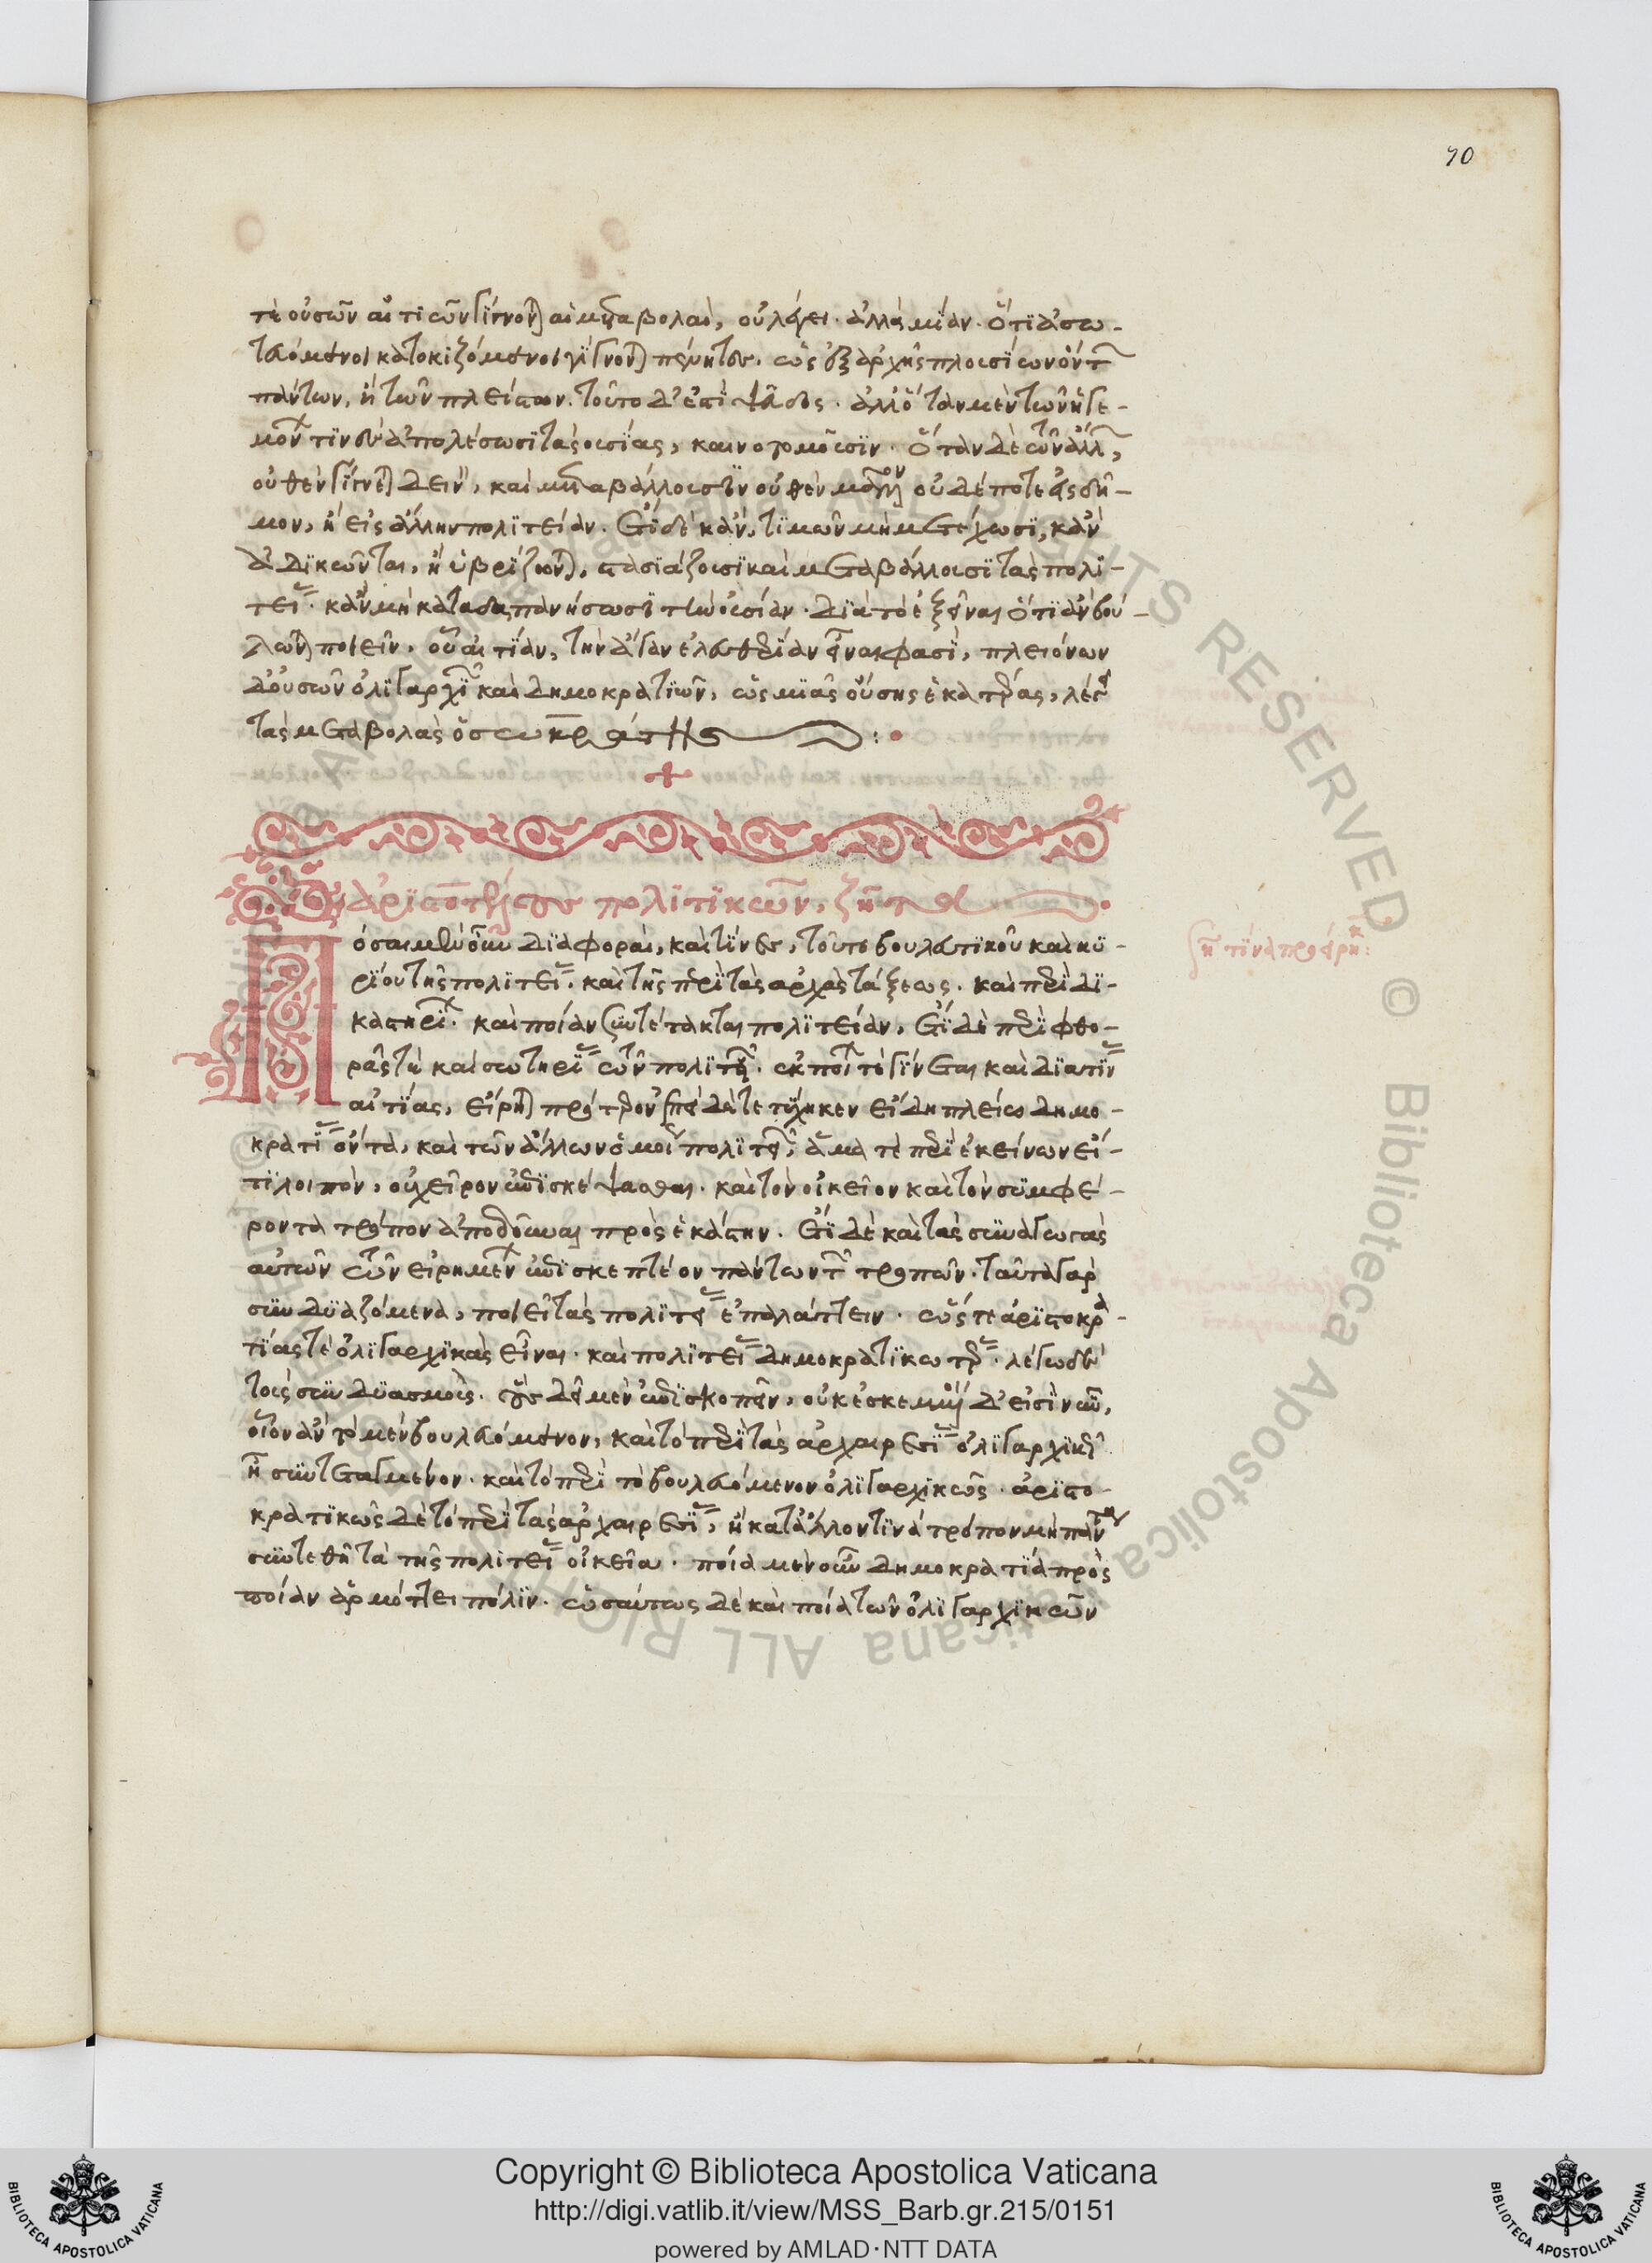 70
τε οὐσῶν αἰτιῶν γίγνονται αἱ μεταβολαὶ, οὐ λέγει ἀλλὰ μίαν. ὅτι ἀσω-
τευόμενοι κατοκιζόμενοι γίγνονται πένητες, ὡς ἐξ ἀρχῆς πλουσίων ὄντων
πάντων, ἢ τῶν πλείστων. τοῦτο δ' ἐστὶ ψεῦδος. ἀλλ' ὅταν μὲν τῶν ἡγε-
μόνων τινὲς ἀπολέσωσι τὰς οὐσίας, καινοτομοῦσιν. ὅταν δὲ τῶν ἄλλων,
οὐθὲν γίγνεται δεινὸν, καὶ μεταβάλλουσιν οὐθὲν μᾶλλον οὐδέποτε εἰς δῆ-
μον, ἢ εἰς ἄλλην πολιτείαν. ἔτι δὲ κἂν τιμῶν μὴ μετέχωσι, κἂν
ἀδικῶνται, ἢ ὑβρίζωνται, στασιάζουσι καὶ μεταβάλλουσι τὰς πολι-
τείας. κἂν μὴ καταδαπανήσωσι τὴν οὐσίαν. διὰ τὸ ἐξεῖναι ὅτι ἂν βού-
λωνται ποιεῖν. οὗ αἰτίαν, τὴν ἄγαν ἐλευθερίαν εἶναι φασὶ, πλειόνων
δ' οὐσῶν ὀλιγαρχιῶν καὶ δημοκρατιῶν, ὡς μιᾶς οὔσης ἑκατέρας, λέγει
τὰς μεταβολὰς ὁ σωκράτης :
ἀριστοτέλους πολιτικῶν, ζητ
Πόσαι μὲν οὖν διαφοραὶ, καὶ τίνες, τοῦ τε βουλευτικοῦ καὶ κυ-
ρίου τῆς πολιτείας. καὶ τῆς περὶ τὰς ἀρχὰς τάξεως. καὶ περὶ δι-
καστηρίων. καὶ ποίαν συντέτακται πολιτείαν, ἔτι δὲ περὶ φθο-
ρᾶς τε καὶ σωτηρίας τῶν πολιτειῶν. ἐκ ποίων τε γίνεται καὶ διὰ τίνας
αἰτίας, εἴρηται πρότερον ἐπεὶ δὲ τετύχηκεν εἴδη πλείω δημο-
κρατίας ὄντα, καὶ τῶν ἄλλων ὁμοίως πολιτειῶν, ἅμα τε περὶ ἐκείνων εἴ-
τι λοιπὸν, οὐ χεῖρον ἐπισκέψασθαι. καὶ τὸν οἰκεῖον καὶ τὸν συμφέ-
ροντα τρόπον ἀποδοῦναι πρὸς ἑκάστην. ἔτι δὲ καὶ τὰς συναγωγὰς
αὐτῶν τῶν εἰρημένων ἐπισκεπτέον πάντων τῶν τρόπων. ταῦτα γὰρ
συνδυαζόμενα, ποιεῖ τὰς πολιτείας ἐπαλάττειν. ὥστε ἀριστοκρα-
τίας τε ὀλιγαρχικὰς εἶναι. καὶ πολιτείας δημοκρατικωτέρας. λέγω δὲ
τοὺς συνδυασμοὺς. οὓς δεῖ μὲν ἐπισκοπεῖν, οὐκ ἐσκεμμένοι δ' εἰσὶ νῦν,
οἷον ἂν τὸ μὲν βουλευόμενον, καὶ τὸ περὶ τὰς ἀρχαιρεσίας ὀλιγαρχικῶς
ᾖ συντεταγμένον. καὶ τὸ περὶ τὸ βουλευόμενον ὀλιγαρχικῶς. ἀριστο-
κρατικῶς δὲ τὸ περὶ τὰς ἀρχαιρεσίας, ἢ κατ' ἄλλον τινὰ τρόπον μὴ πάντα
συντεθῇ τὰ τῆς πολιτείας οἰκεῖα. ποία μὲν οὖν δημοκρατία πρὸς
ποίαν ἁρμόττει πόλιν. ὡσαύτως δὲ καὶ ποία τῶν ὀλιγαρχικῶν
Copyright © Biblioteca Apostolica Vaticana
http://digi.vatlib.it/view/MSS_Barb.gr.215/0151
powered by AMLAD·NTT DATA